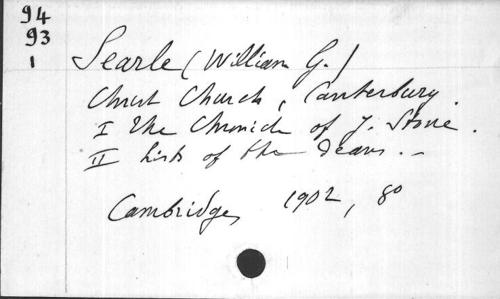 94
93
1
Searle (William G.)
Christ Church, Canterbury.
I The Chronicle of J. Stone.
II Lists of the Deans. -
Cambridge, 1902, 8o